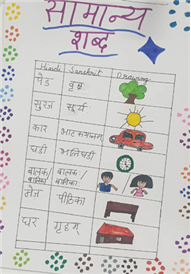 सामान्य
शब्द
Hindi Sanskrit Drawing
पेड़ वृक्ष
सुरज सूर्य
कार
घडी
बालक/ बालक/
बालिका बालिका
मेज पीठिका
घर गृहम्